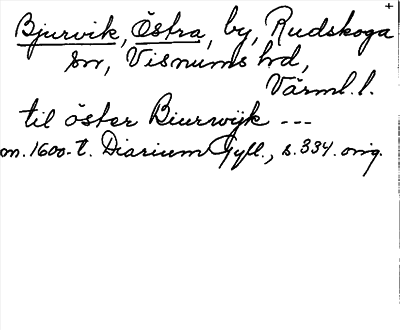 Bjurvik, Östra, by, Rudskoga
sn, Visnums hd,
Värml. l.
til öster Biurwijk ---
m. 1600-t. Diarium Gyll., s. 334. orig.